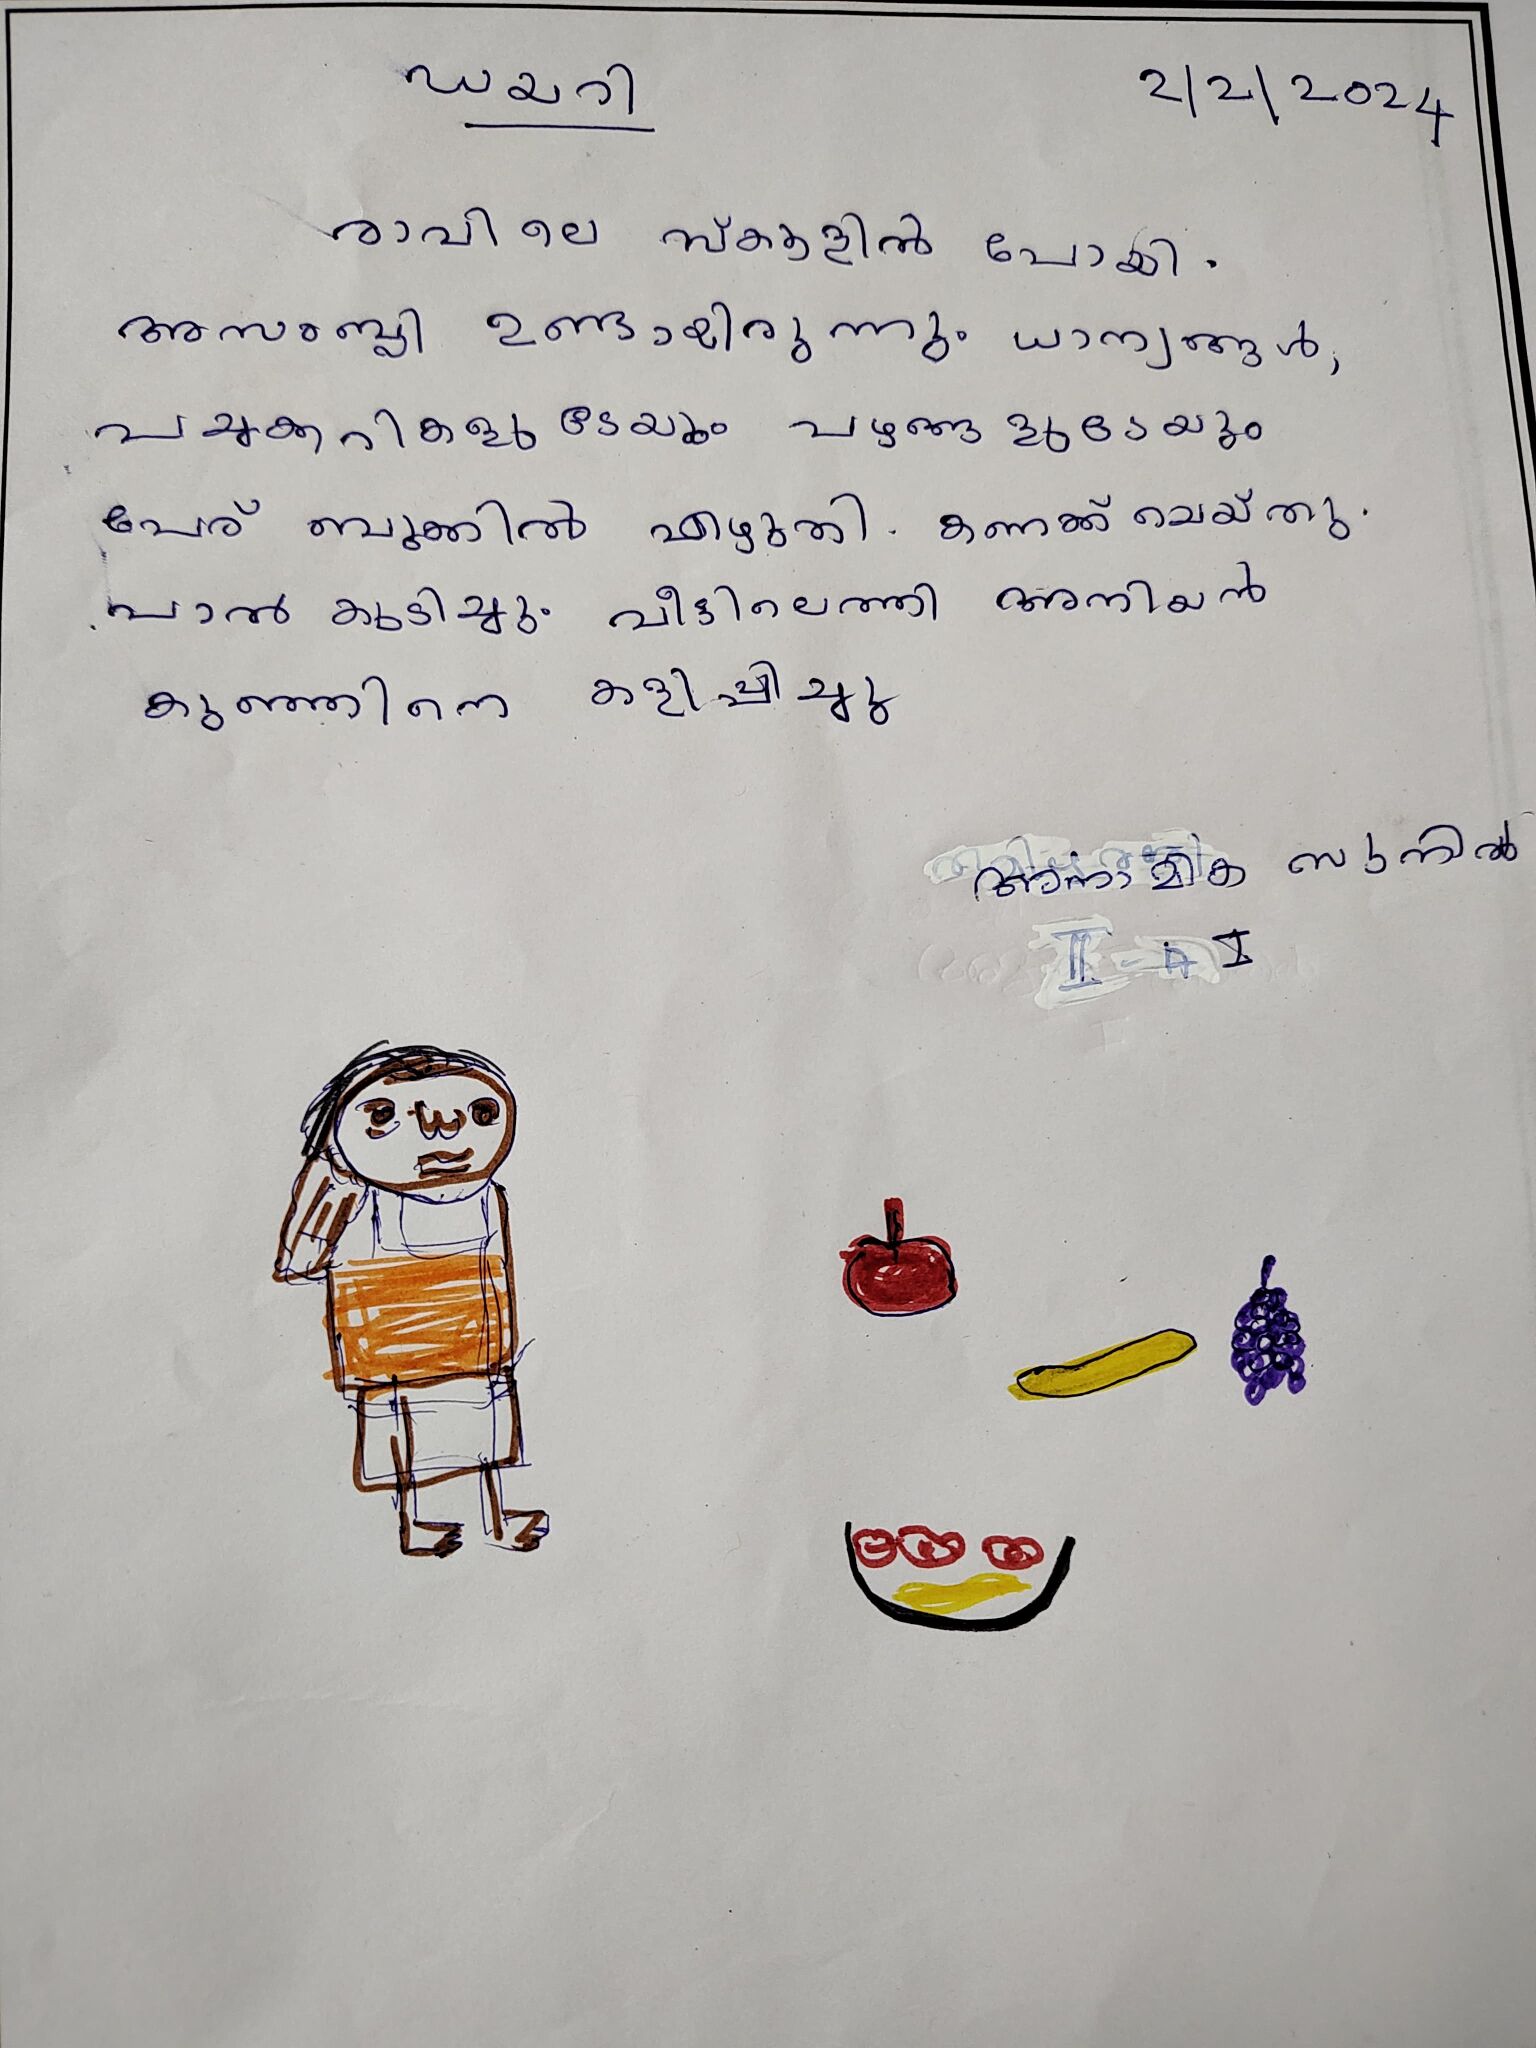 ഡയറി 2/2/2024
രാവിലെ സ്കൂളിൽ പോയി.
അസംബ്ലി ഉണ്ടായിരുന്നും ധാന്യങ്ങൾ,
പച്ചക്കറികളുടേയും പഴങ്ങളുടേയും
പേര് ബുക്കിൽ എഴുതി. കണക്ക് ചെയ്തു.
പാൽ കുടിച്ചും വീട്ടിലെത്തി അനിയൻ
കുഞ്ഞിനെ കളിപ്പിച്ചു
അനാമിക സുനിൽ
I